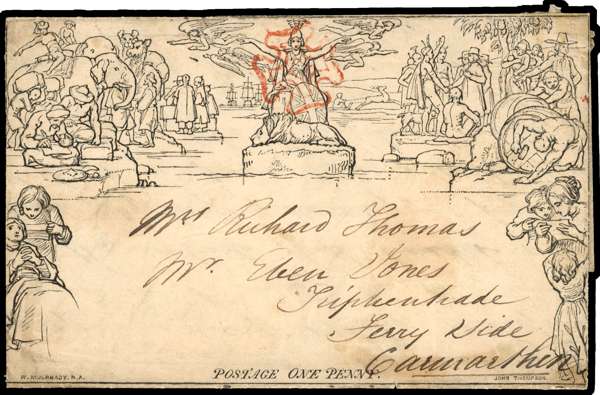 Mrs Richard Thomas
Mr. Eben Jones
Ferry Side
Carmarthen
W. MULREADY. R.A.
POSTAGE ONE PENNY.
JOHN THOMPSON.